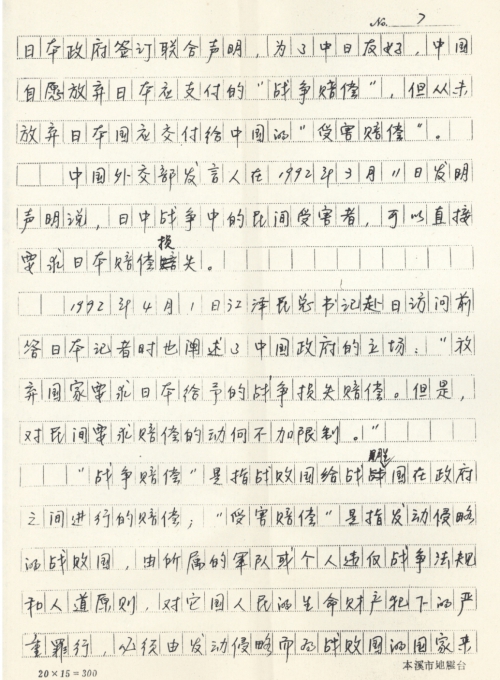 No. 7
日本政府签订联合声明，为了中日友好，中国
自愿放弃日本应支付的"战争赔偿"，但从未
放弃日本国应交付给中国的"受害赔偿"。
中国外交部发言人在1992年3月11日发明
声明说，日中战争中的民间受害者，可以直接
要求日本赔偿损失。
1992年4月1日江泽民总书记赴日访问前
答日本记者时也阐述了中国政府的立场："放
弃国家要求日本给予的战争损失赔偿。但是，
对民间要求赔偿的动向不加限制。"
"战争赔偿"是指战败国给战胜国在政府
之间进行的赔偿；"受害赔偿"是指发动侵略
的战败国，由所属的军队或个人违反战争法规
和人道原则，对它国人民的生命财产犯下的严
重罪行，必须由发动侵略而为战败国的国家来
20×15=300
本溪市地震台